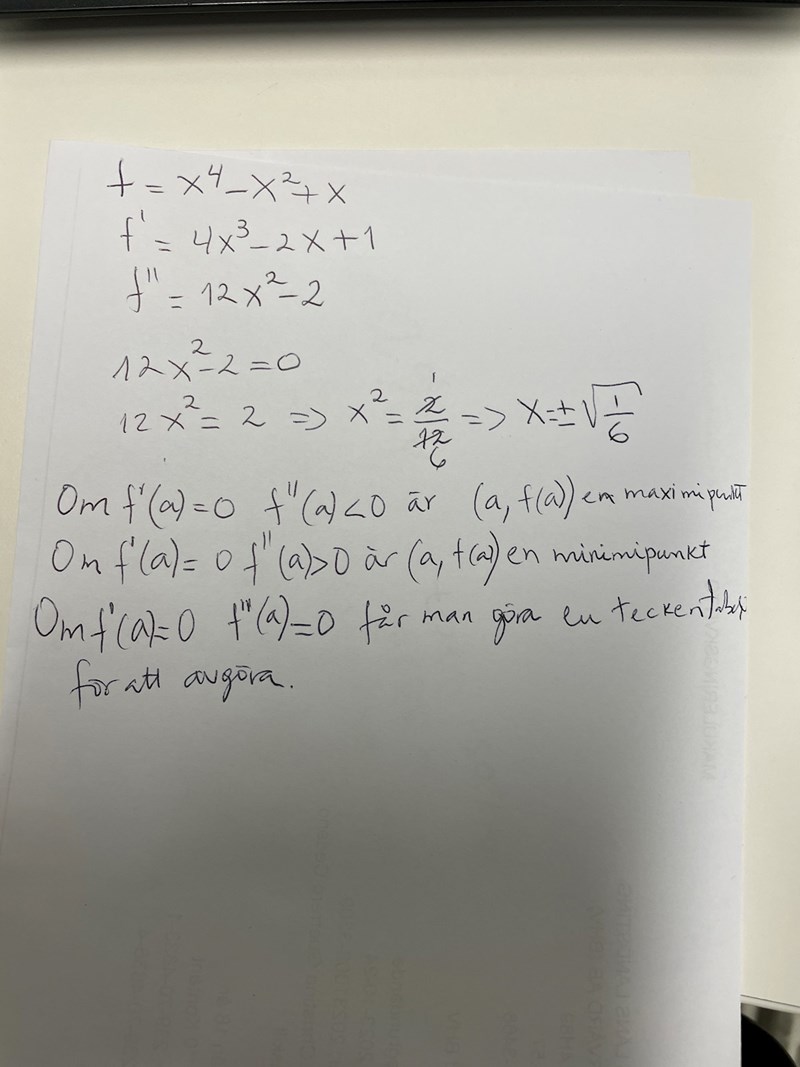 f = x⁴ – x² + x
f' = 4x³ – 2x + 1
f'' = 12x² – 2
12x² – 2 = 0
12x² = 2 => x² = 2/12 1/6 => x = ± √(1/6)
Om f'(a) = 0 f''(a) < 0 är (a, f(a)) en maximipunkt
Om f'(a) = 0 f''(a) > 0 är (a, f(a)) en minimipunkt
Om f'(a) = 0 f''(a) = 0 får man göra en
för att avgöra.